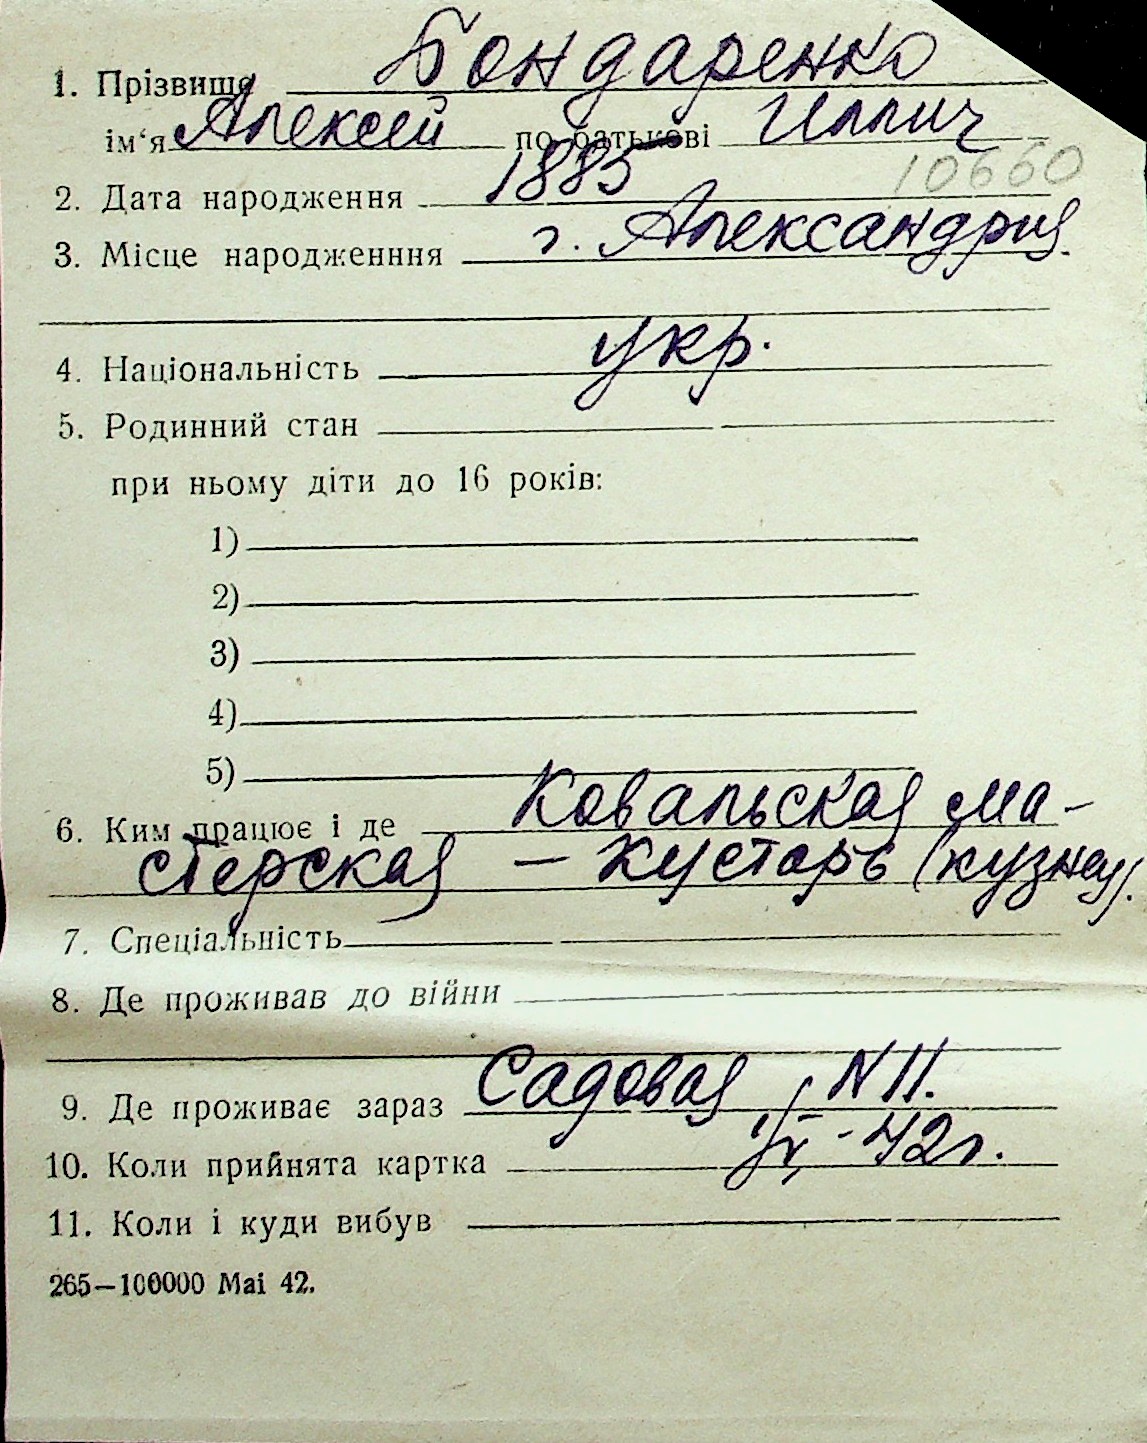 1. Прізвище Бондаренко
ім‘я Алексей по батькові Иллич
2. Дата народження 1885 10660
3. Місце народженння г. Александрия.
4. Національність укр.
5. Родинний стан
при ньому діти до 16 років:
1)
2)
3)
4)
5)
6. Ким працює і де Ковальская ма-
стерская – кустарь (кузнец).
7. Спеціальність
8. Де проживав до війни
9. Де проживає зараз Садовая N 11.
10. Коли прийнята картка -42г.
11. Коли і куди вибув
265—100000 Mai 42.